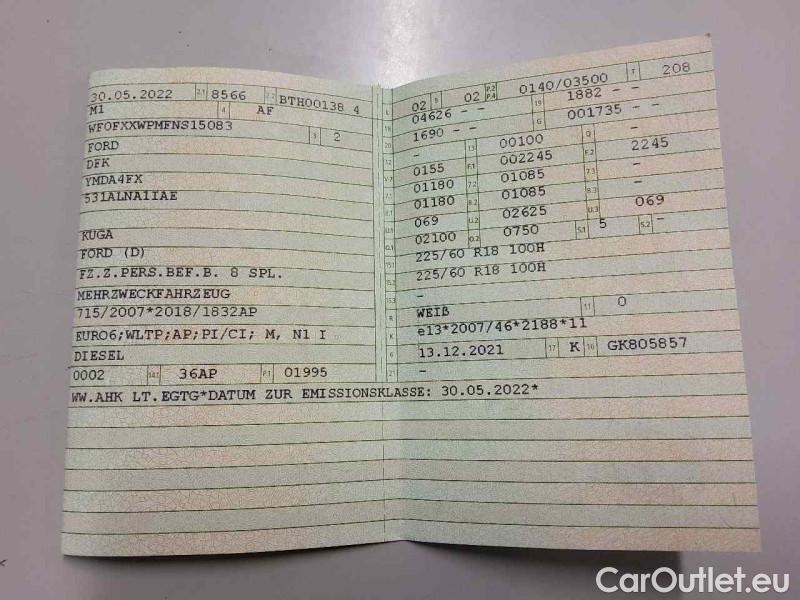 30.05.2022 2.1 8566 2.2 BTH00138 4
M1 4 AF
WF0FXXWPMFNS15083
3 2
FORD
DFK
YMDA4FX
531ALNA1IAE
KUGA
FORD (D)
FZ.Z.PERS.BEF.B. 8 SPL.
MEHRZWECKFAHRZEUG
715/2007*2018/1832AP
EURO6;WLTP;AP;PI/CI; M, N1 I
DIESEL
0002 14.1 36AP P.1 01995
WW.AHK LT.EGTG*DATUM ZUR EMISSIONSKLASSE: 30.05.2022*
L 02 9 02 P.2 P.4 0140/03500 T 208
18 04626 - - 19 1882 - -
20 1690 - - G 001735 - -
12 - 13 00100 Q -
V.7 0155 F.1 002245 F.2 2245
7.1 01180 7.2 01085 7.3 -
8.1 01180 8.2 01085 8.3 -
U.1 069 U.2 02625 U.3 069
O.1 02100 O.2 0750 S.1 5 S.2 -
15.1 225/60 R18 100H
15.2 225/60 R18 100H
15.3 -
R WEIß 11 0
K e13*2007/46*2188*11
6 13.12.2021 17 K 16 GK805857
21 -
CarOutlet.eu